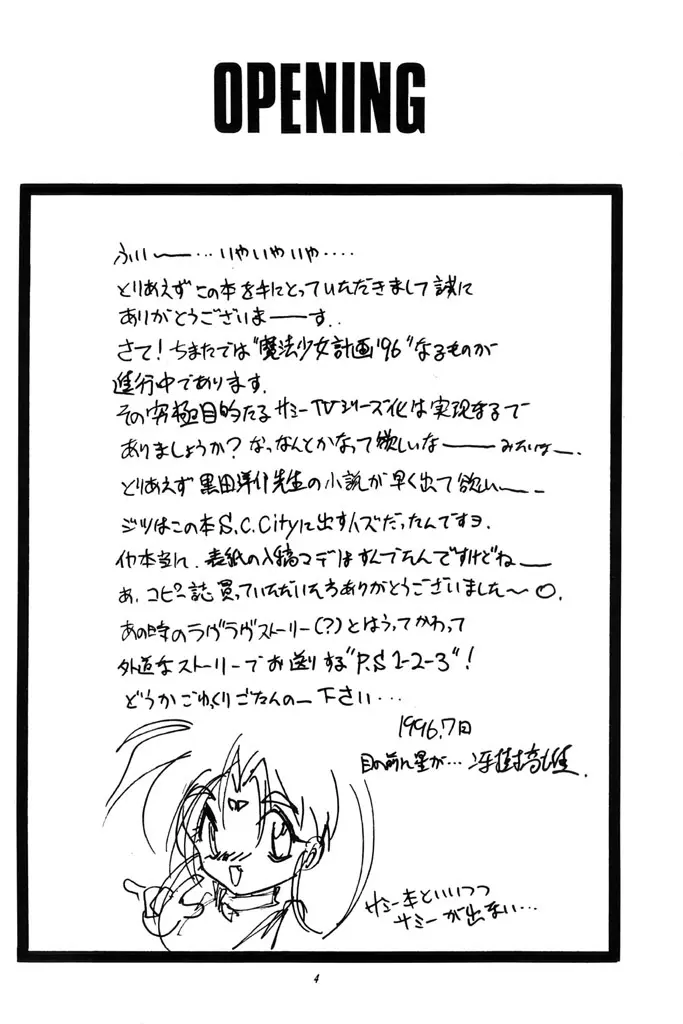 OPENING
ふいー…いやいやいや‥‥
とりあえずこの本を手にとっていただきまして誠に
ありがとうございまーーす‥
さて!ちまたでは"魔法少女計画'96"なるものが
進行中であります.
その究極目的たるサミーTVシリーズ化は実現するで
ありましょうか?なっなんとかなって欲しいなーーみたいなー.
とりあえず黒田洋介先生の小説が早く出て欲しい〜ー
ジツはこの本S.C.Cityに出すハズだったんですヨ.
イヤ本当に.表紙の入稿マデはすんでたんですけどねー
あ.コピー誌買っていただいた方ありがとうございました〜○.
あの時のラヴラヴストーリー(?)とはうってかわって
外道なストーリーでお送りする"P.S 1-2-3"!
どうかごゆっくりごたんのー下さい…
1996.7日
目の前に星が…冴樹高雄.
サミー本といいつつ
サミーが出ない…
4